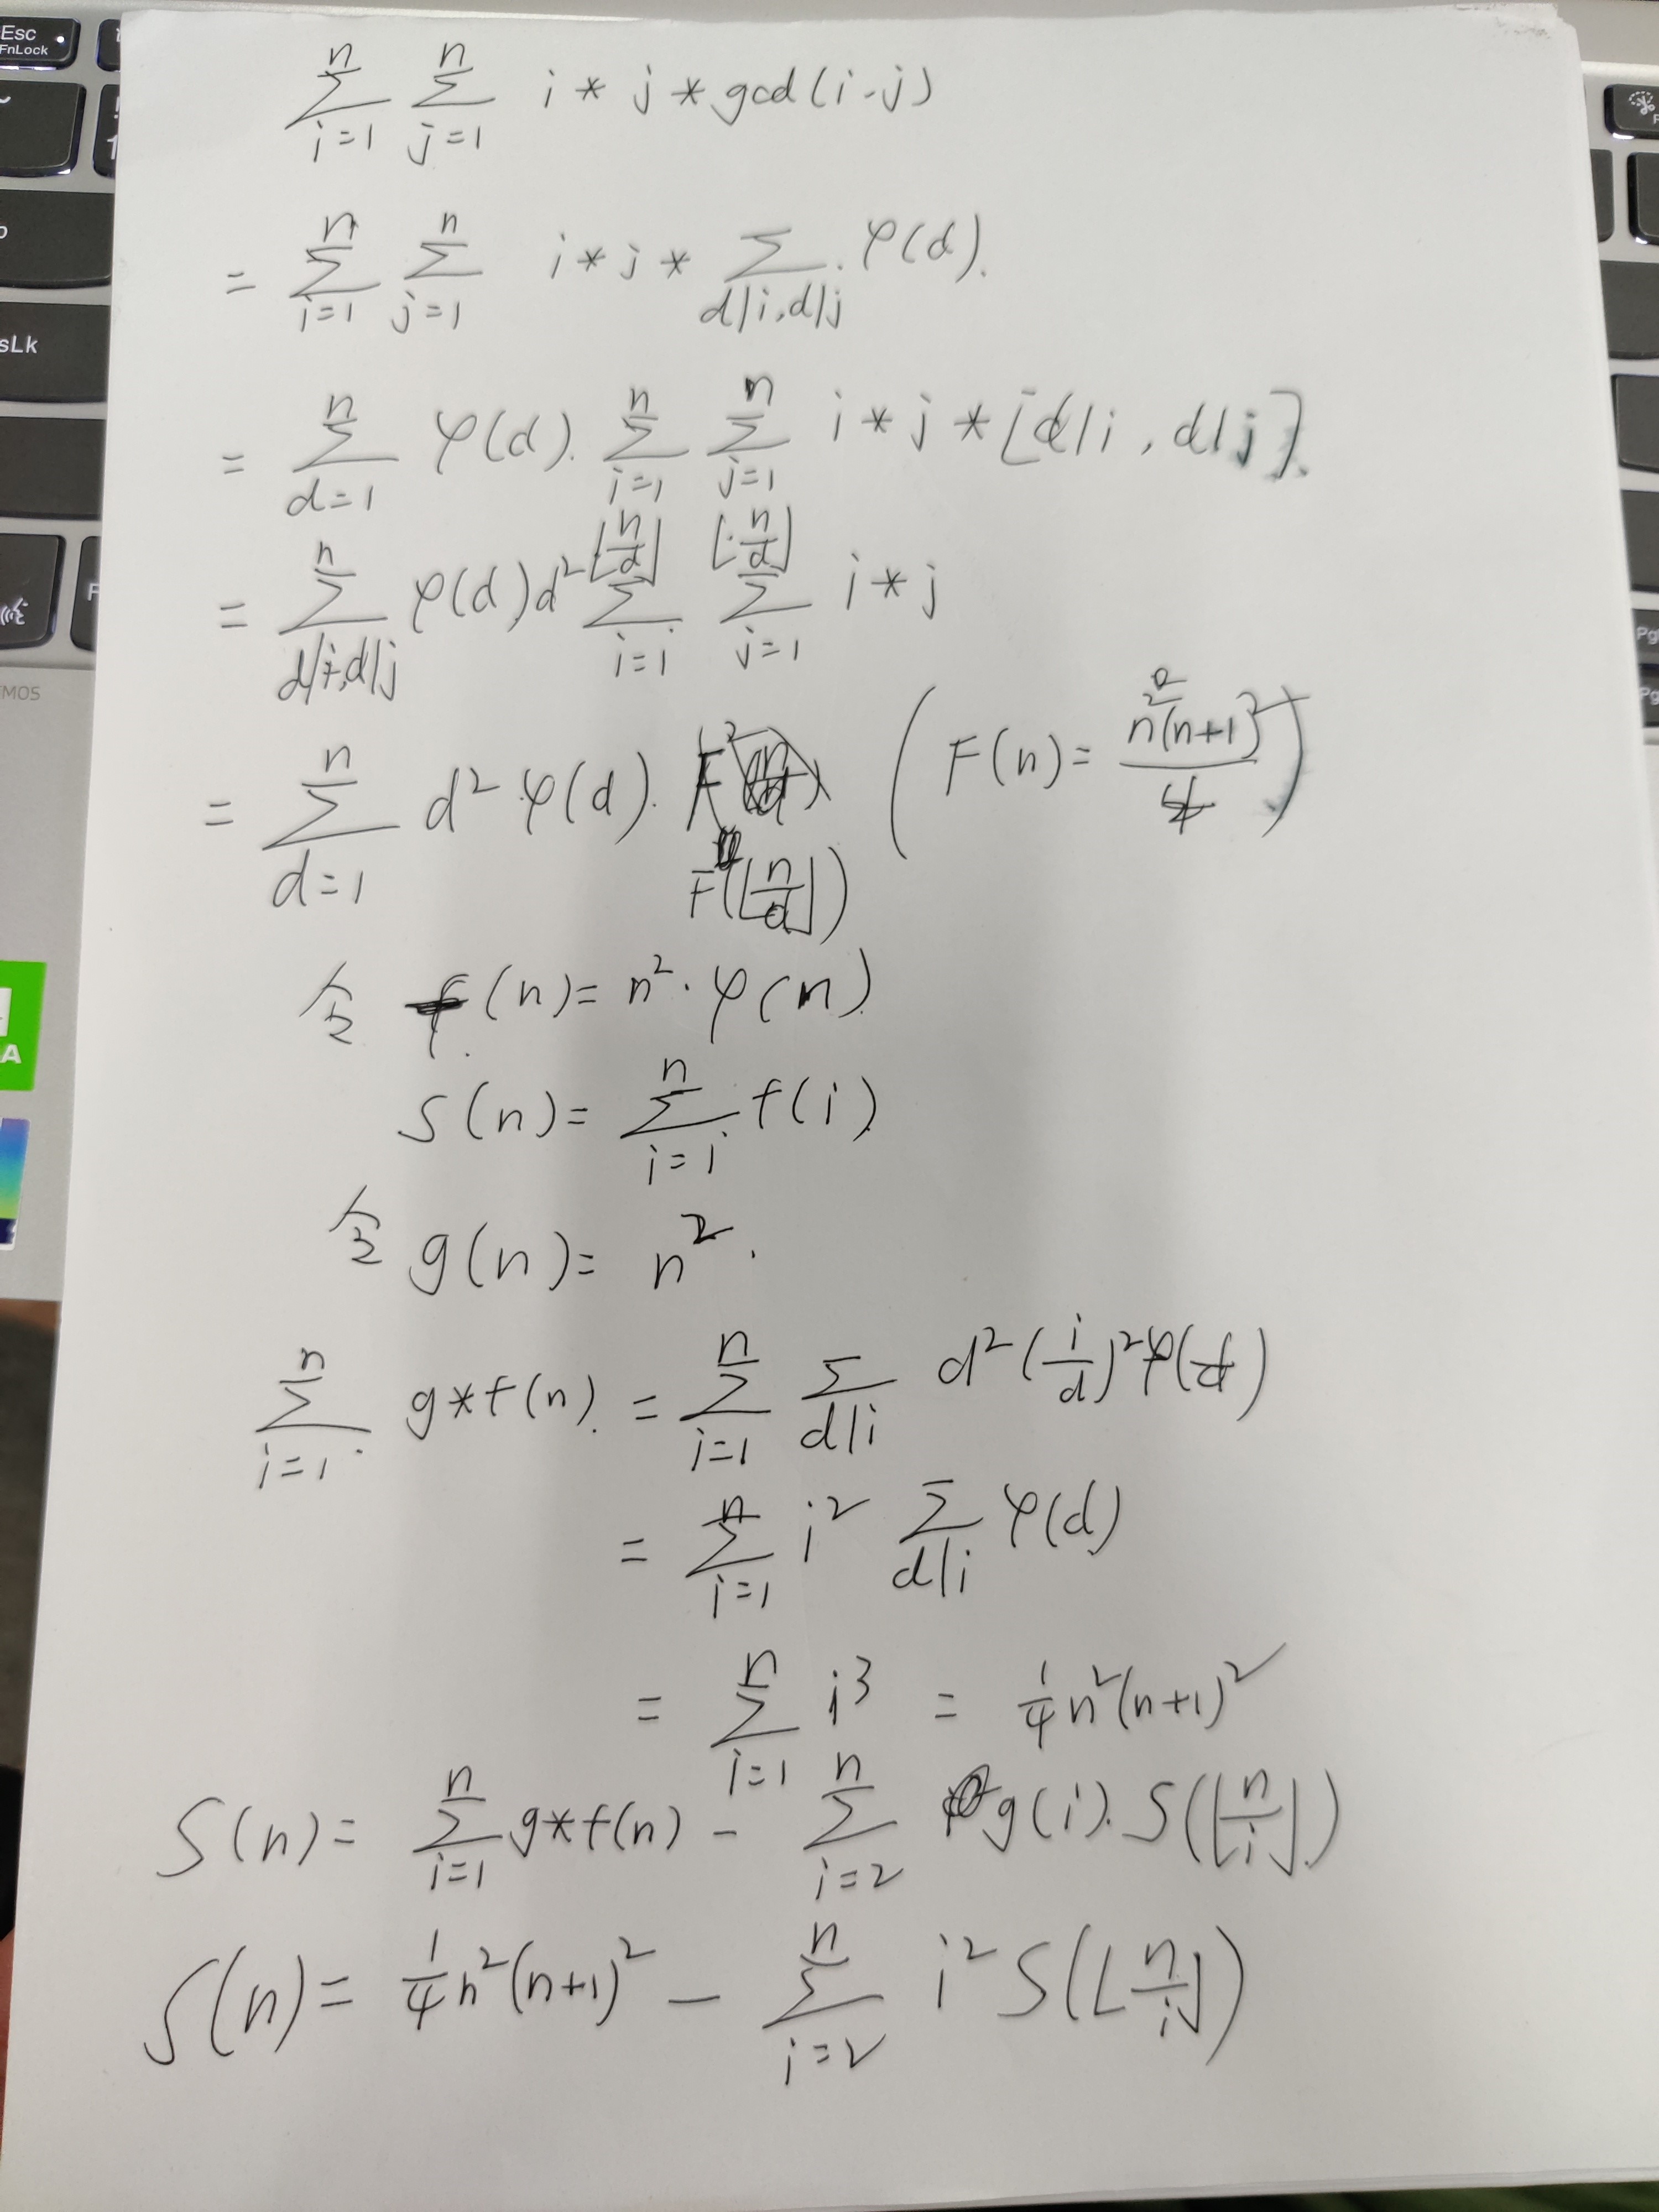 Esc
FnLock
sLk
F
TMOS
A
Pg
Pg
\sum_{i=1}^{n} \sum_{j=1}^{n} i * j * gcd(i,j)
= \sum_{i=1}^{n} \sum_{j=1}^{n} i * j * \sum_{d|i,d|j} φ(d).
= \sum_{d=1}^{n} φ(d). \sum_{i=1}^{n} \sum_{j=1}^{n} i * j * [d|i, d|j].
= \sum_{d|i,d|j}^{n} φ(d) d^2 \sum_{i=1}^{⌊n/d⌋} \sum_{j=1}^{⌊n/d⌋} i * j
= \sum_{d=1}^{n} d^2 · φ(d). F(⌊n/d⌋) (F(n) = \frac{n^2(n+1)^2}{4})
令 f(n) = n^2 · φ(n)
S(n) = \sum_{i=1}^{n} f(i)
令 g(n) = n^2.
\sum_{i=1}^{n} g*f(n) = \sum_{i=1}^{n} \sum_{d|i} d^2 (\frac{i}{d})^2 φ(d)
= \sum_{i=1}^{n} i^2 \sum_{d|i} φ(d)
= \sum_{i=1}^{n} i^3 = \frac{1}{4} n^2 (n+1)^2
S(n) = \sum_{i=1}^{n} g*f(n) - \sum_{i=2}^{n} g(i). S(⌊n/i⌋)
S(n) = \frac{1}{4} n^2 (n+1)^2 - \sum_{i=2}^{n} i^2 S(⌊n/i⌋)